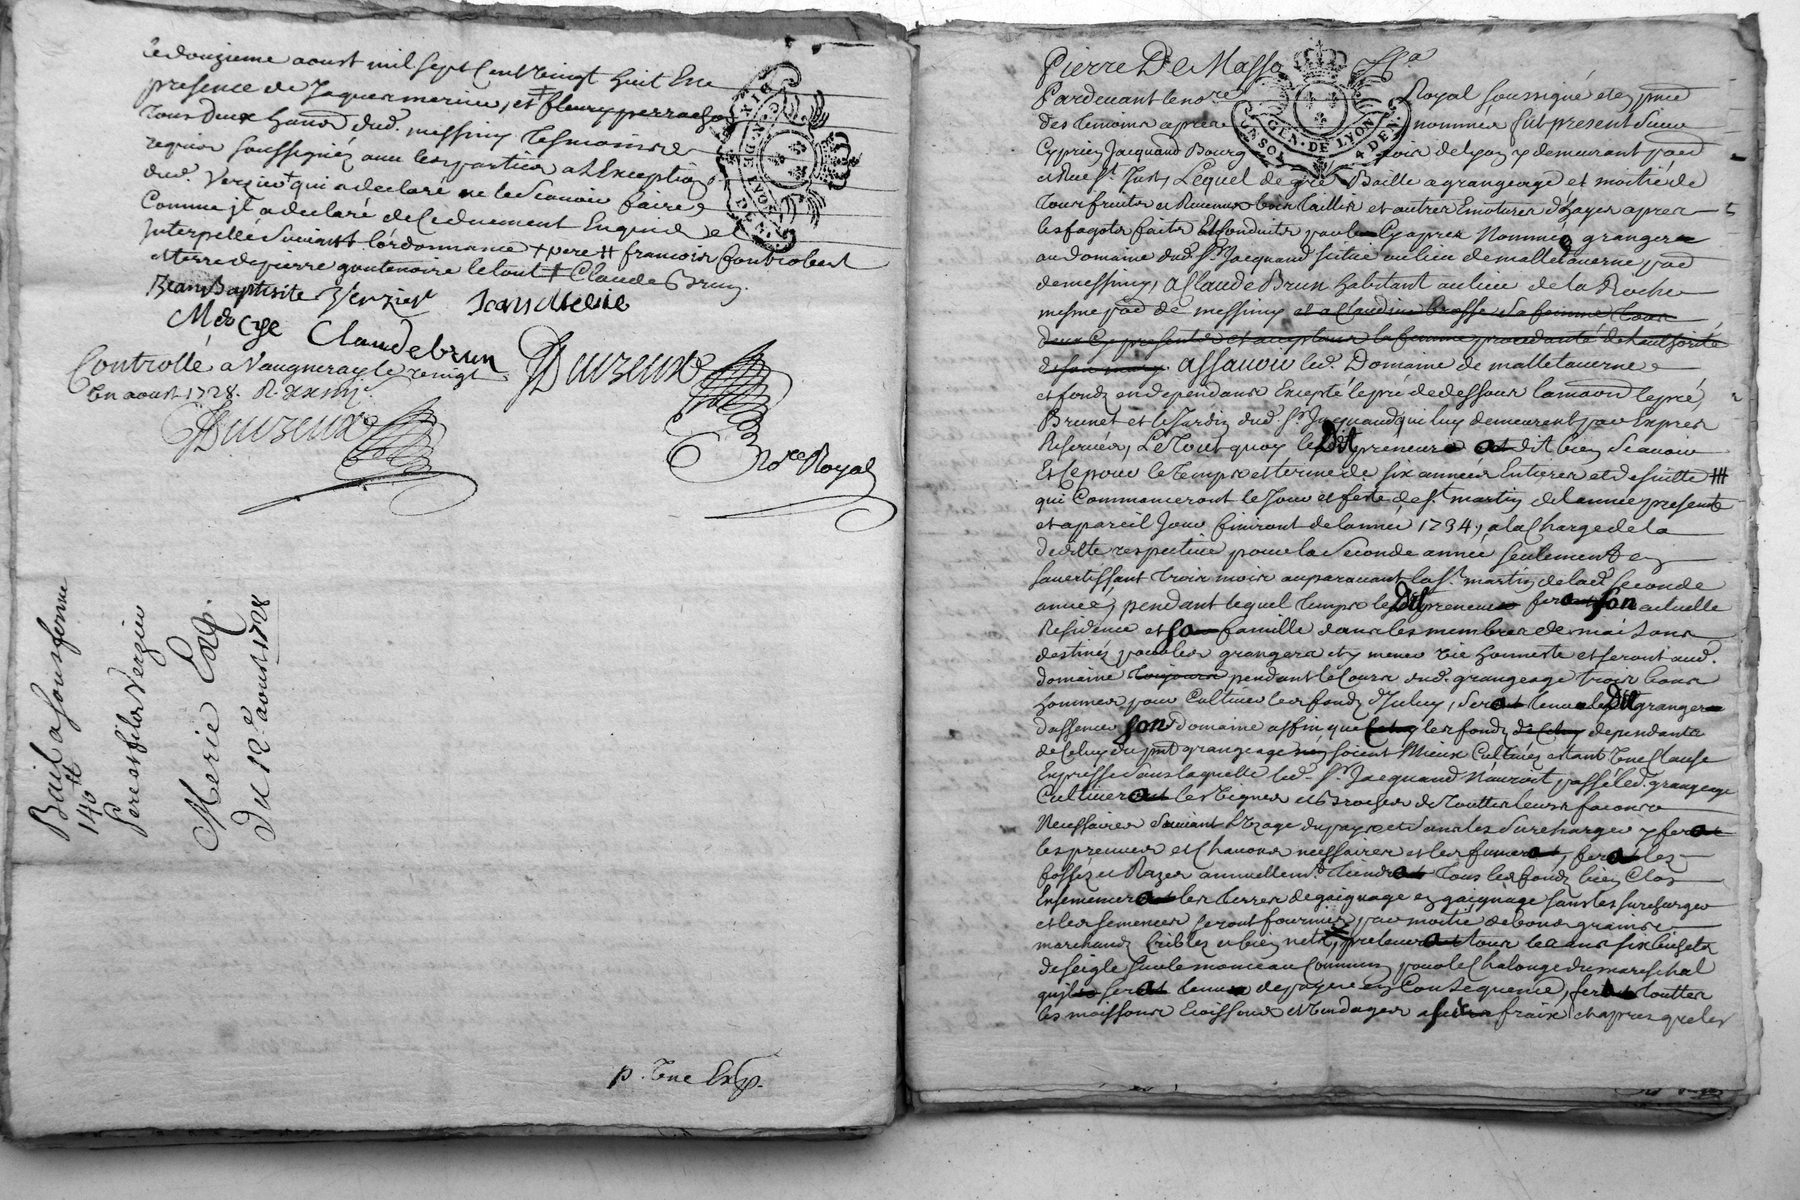 le douzieme aoust mil sept Cent vingt huit En
presence de Jaques merieu, et fleury perrachon
tous deux hans dud. messimy tesmoins
requis soussignés avec les parties a L'exception
dud. Verzieu qui a declaré ne le Scavoir faire
Comme jl a declaré de Ce duement Enquis et
Interpellé Suivant l'ordonnance + pere # francois
et terre de pierre le tout # Claude Brun.
Jean Baptiste Verzieu Jean
Claude brun
Controllé a Vaugneray le vingt
En aoust 1728. R.
Duvzeux
Nore Royal
Bail a sousferme
140 tt
Pere et fils Verzieu
Merie Exp.
Du 12e aoust 1728
p. Une Exp.
Pierre De Masso
GEN. DE LYON 4 DEN
Pardevant le nore Royal soussigné et en pnce
des temoins apres nommés fut present Sieur
Cyprien Jacquand Bourgeois de Lyon y demeurant pard
et Rue St. Just, Lequel de gré Baille a grangeage et moitié de
tous fruits et Revenus bois taillis et autres Emoturés d'hayes apres
les fagots faits Et Conduits par le Cy apres Nommé granger
au domaine dud. Sr. Jacquand scitué au lieu de malletaverne pard
de messimy, a Claude Brun habitant au lieu de la Roche
mesme pard de messimy et a Claudine brosse sa femme tous
deux Cy presents et acceptans la femme procedante de l'authorité
de son mary. assavoir led. Domaine de malletaverne
et fonds en dependans Excepté le pré de dessous la maison le pré
Brunet et le Jardin dud. Sr. Jacquand qui luy demeurent par Expres
Reservés, Le Tout quoy le Dit preneur a dit bien Scavoir
Et Ce pour le temps et terme de six années Entieres et de suitte #
qui Commenceront le Jour et feste de St. martin de l'année presente
et a pareil Jour finiront de l'année 1734, a la Charge de la
dedite respective pour la seconde année seulement en
s'avertissant trois mois auparavant la St. martin de lad. seconde
année, pendant lequel temps le Dit preneur fera son actuelle
Residence et sa famille dans les membres de maisons
destinés pour les grangers et y mener vie honneste et seront aud.
domaine toujours pendant le Cours dud. grangeage trois bons
hommes pour Cultiver les fonds d'Iceluy, sera tenu le Dit granger
d'affermer son domaine affin que les fonds de Celuy dependants
de Celuy du pnt grangeage soient Mieux Cultivés estant Une Clause
Expresse sans laquelle led. Sr. Jacquand N'auroit passé led. grangeage
Cultivera les Vignes et Broches de Touttes leurs facons
Necessaires Suivant L'Usage du pays et sans les Surcharger y fera
les preuves et Chavons necessaires et les fumera, fera les
fossés et Razes annuellemt. tiendra Tous les fonds bien Clos
Ensemencera les terres de gaignage en gaignage sans les surcharger
et les semences seront fournies par moitié de bons grains
marchands Cribles et bien nets, prelevera tous les ans six bichets
de seigle sur le monceau Commun pour le Chalonge du mareschal
quil sera tenu de payer en Consequence, fera touttes
les moissons Croissons et Vendages a ses fraix et apres que les